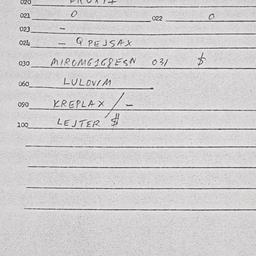 020 PROXY1
021 0 022 0
023 -
024 - Q PEJSAX
030 MIROMG1GPESN 031 $
060 LULOVIM
090 KREPLAX / -
100 LEJTER $